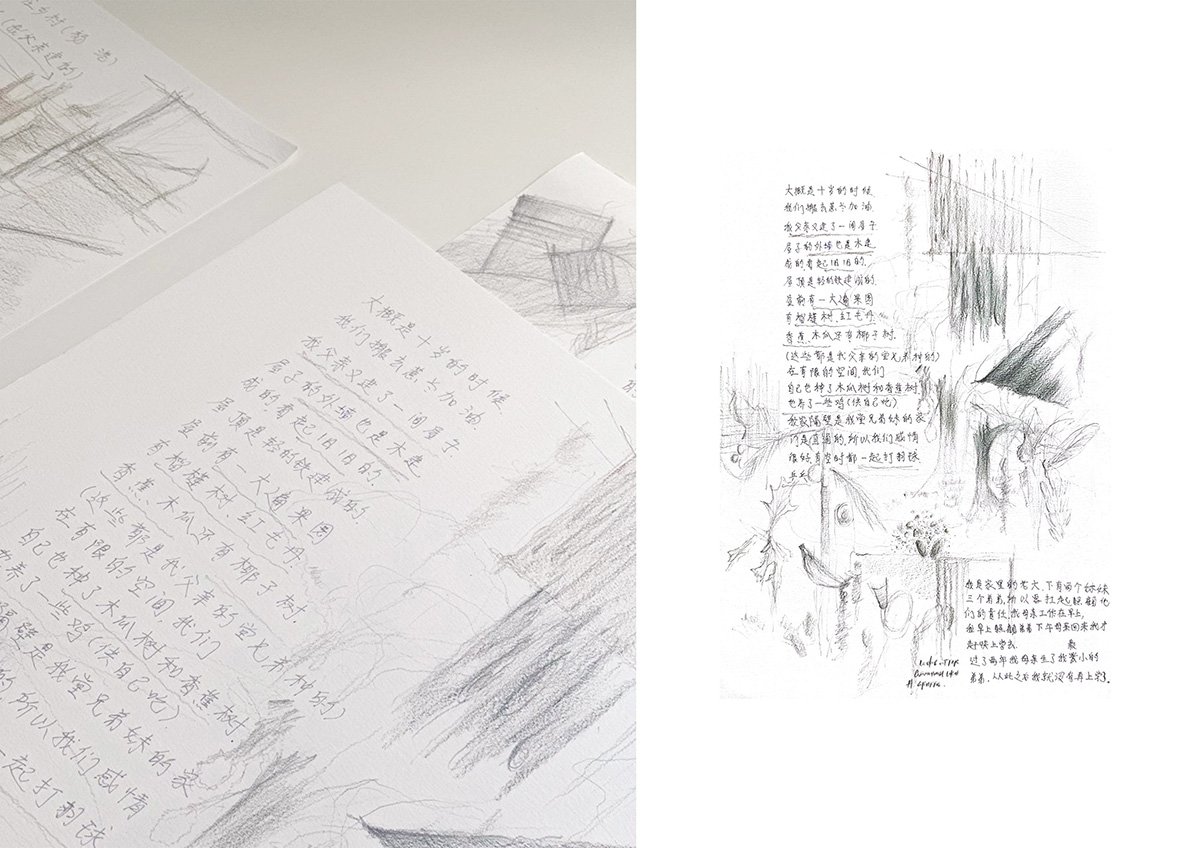 (在父亲建的)
大概是十岁的时候
我们搬去
加油
我父亲又建了一间屋子
屋子的外墙也是木建
成的.看起旧旧的.
屋顶是轻的铁建成的
屋前有一大遍果园
有榴槤树.红毛丹
香蕉.木瓜还有椰子树.
(这些都是我父亲的堂兄弟种的)
在有限的空间,我们
自己也种了木瓜树和香蕉树.
养了一些鸡(供自己吃)
隔壁是我堂兄弟妹的家
的,所以我们感情
一起打羽球
大概是十岁的时候
我们搬去
加油
我父亲又建了一间屋子
屋子的外墙也是木建
成的看起旧旧的.
屋顶是轻的铁建成的
屋前有一大遍果园
有榴槤树.红毛丹
香蕉.木瓜还有椰子树.
(这些都是我父亲的堂兄弟种的)
在有限的空间,我们
自己也种了木瓜树和香蕉树
也养了一些鸡(供自己吃)
我家隔壁是我堂兄弟妹的家
门是直通的,所以我们感情
很好.有空时都一起打羽球
乒乓
我是家里的老大,下有两个妹妹
三个弟弟,所以要扛起照顾他
们的责任,我母亲工作在早上,
我早上照顾弟弟下午母亲回来我才
赶快上学去.
最
过了两年我母亲生了我小的
弟弟.从此之后我就没有再上学了.